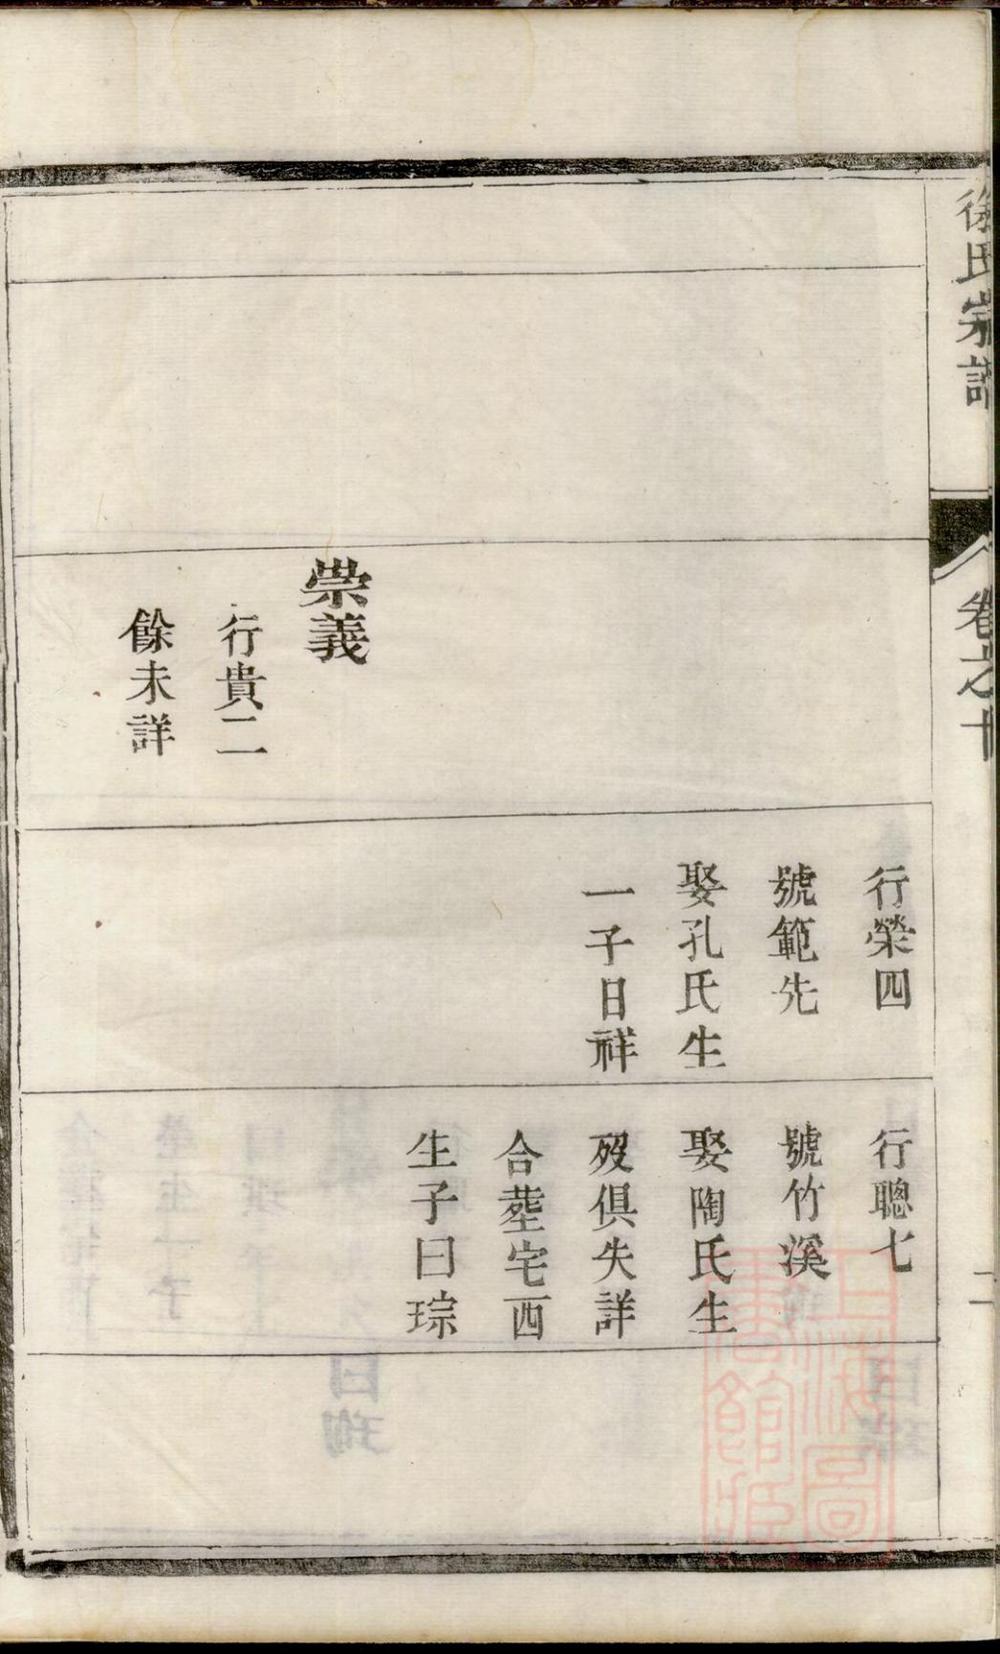 徐氏宗譜
卷之十
二
崇義
行貴二
餘未詳
行榮四
號範先
娶孔氏生
一子日祥
行聰七
號竹溪
娶陶氏生
歿俱失詳
合塟宅西
生子曰琮
上海圖
書館藏